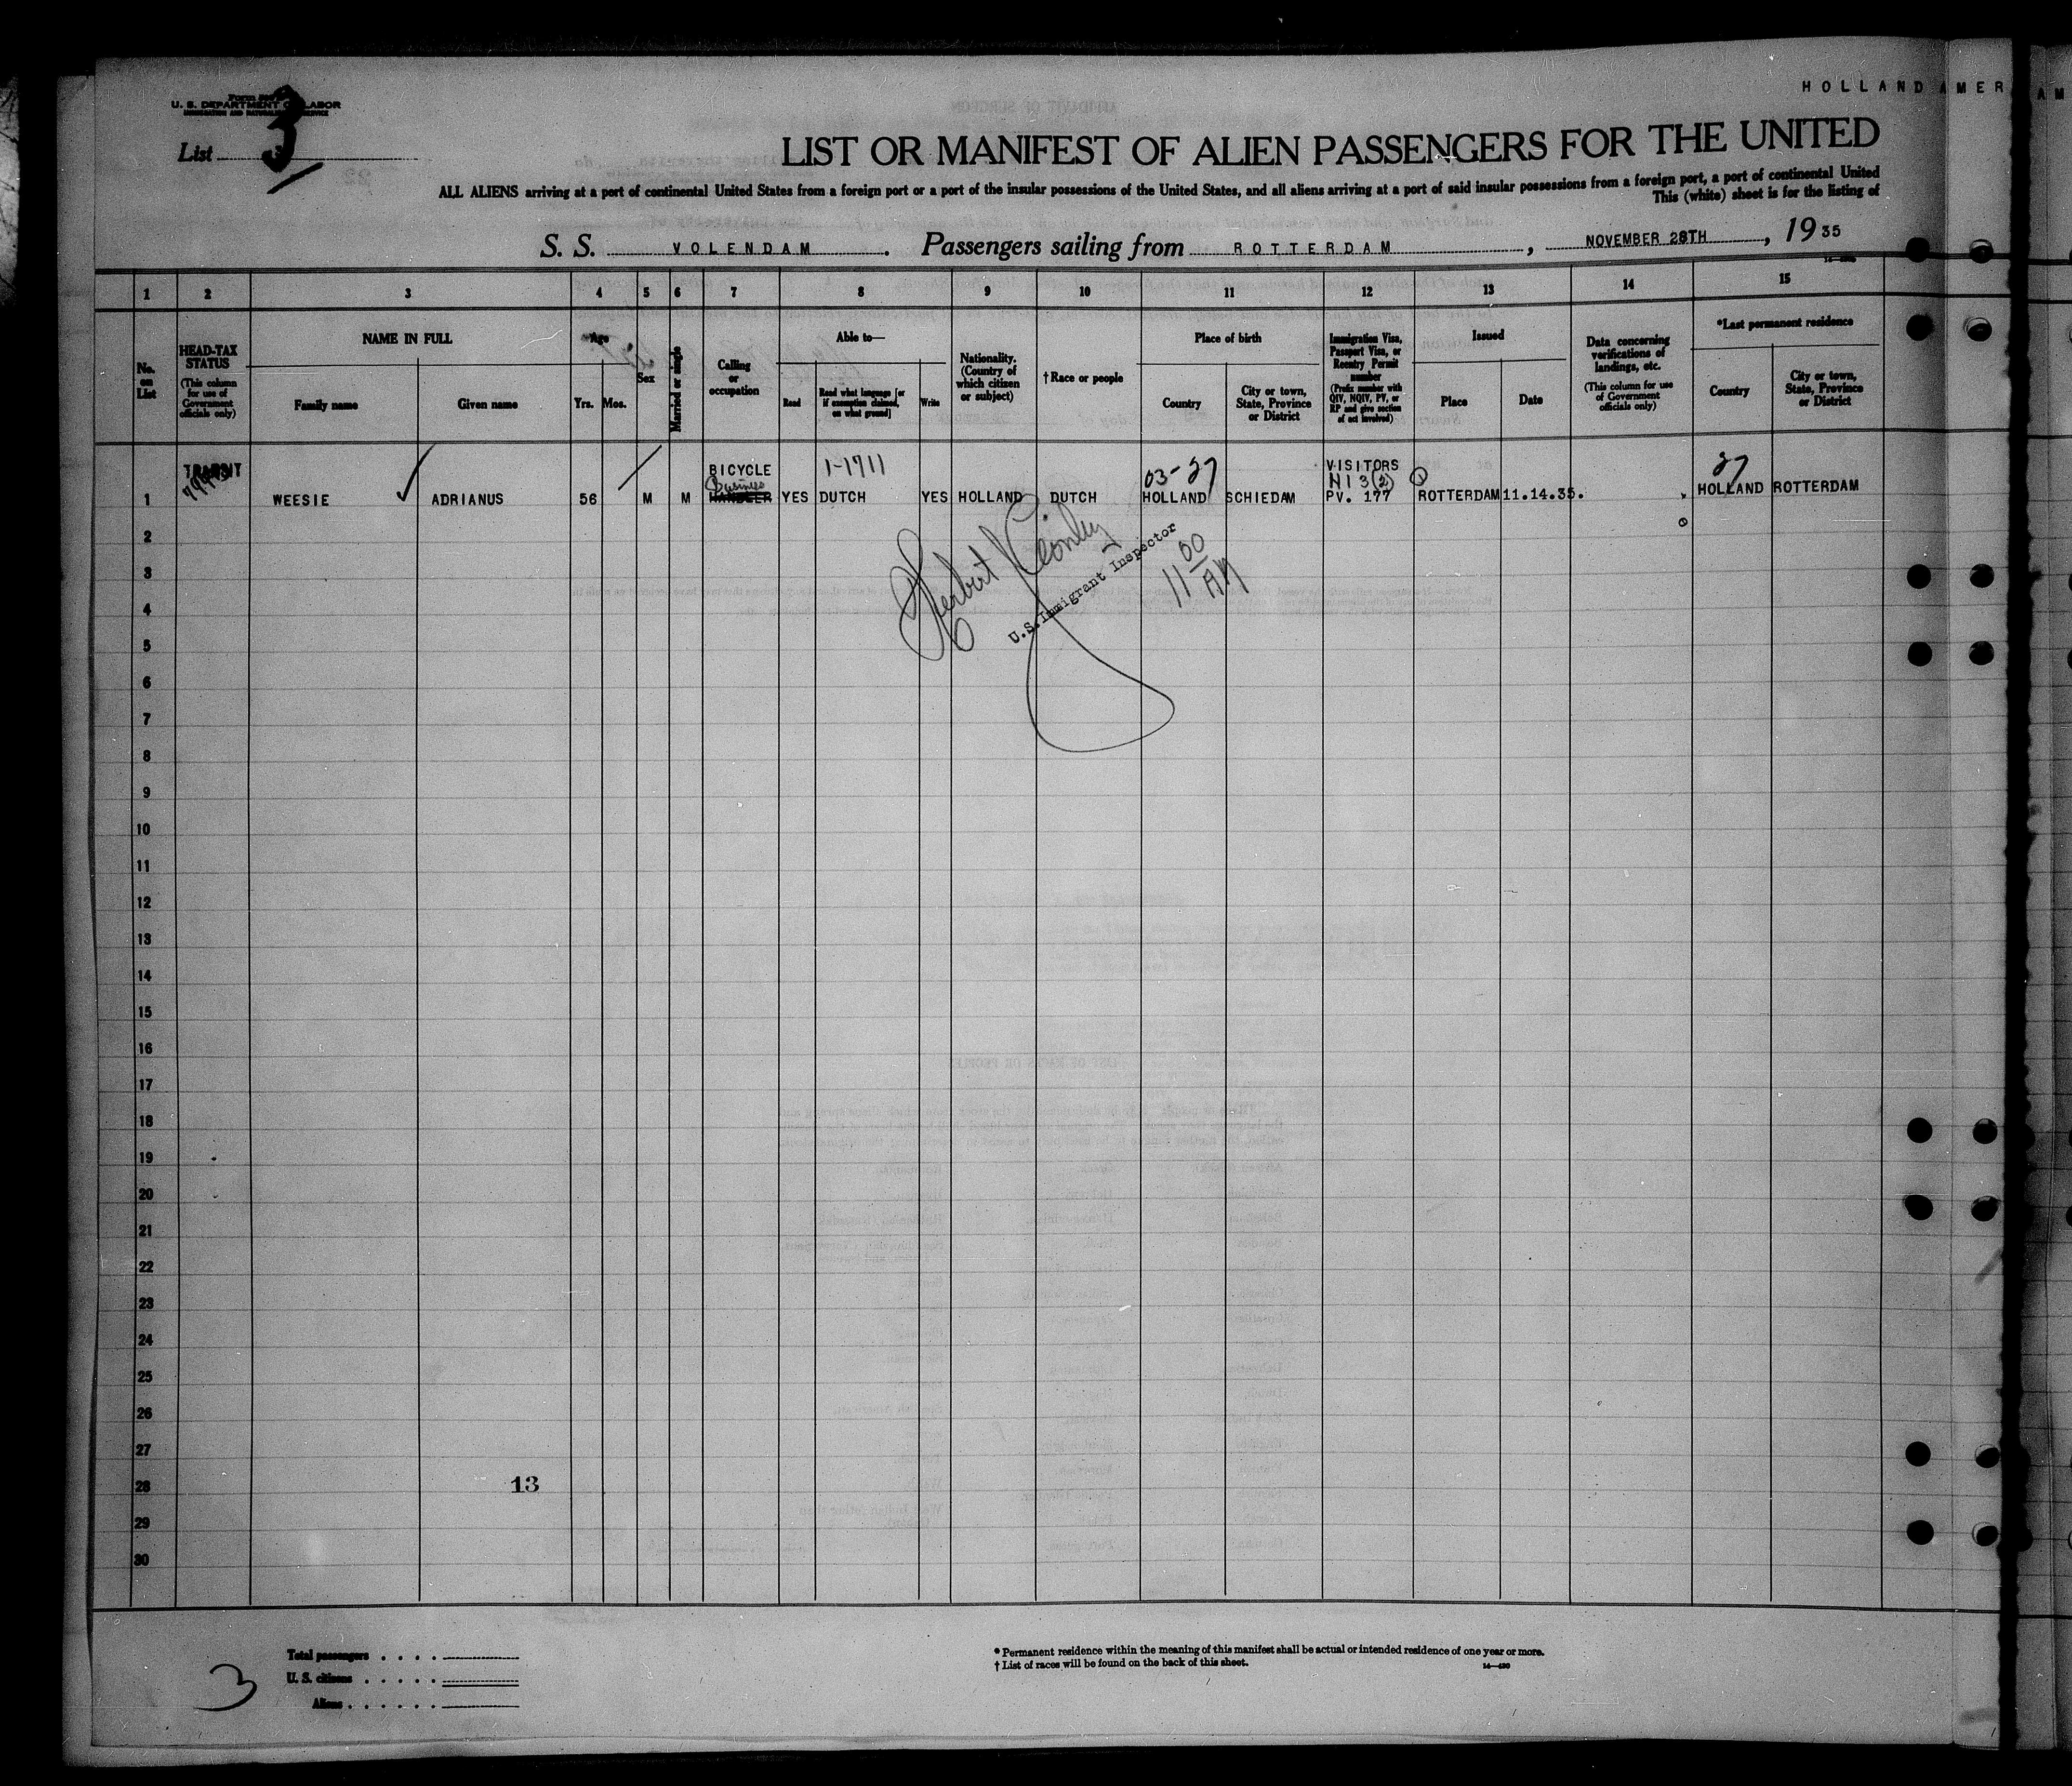 HOLLAND AMER
AM
U. S. DEPARTMENT OF LABOR
IMMIGRATION AND NATURALIZATION SERVICE
List 3
LIST OR MANIFEST OF ALIEN PASSENGERS FOR THE UNITED
ALL ALIENS arriving at a port of continental United States from a foreign port or a port of the insular possessions of the United States, and all aliens arriving at a port of said insular possessions from a foreign port, a port of continental United
This (white) sheet is for the listing of
S. S. VOLENDAM. Passengers sailing from ROTTERDAM, NOVEMBER 28TH, 1935
1 2 3 4 5 6 7 8 9 10 11 12 13 14 15
No. on List
HEAD-TAX STATUS (This column for use of Government officials only)
NAME IN FULL
Family name
Given name
Age
Yrs. Mos.
Sex
Married or single
Calling or occupation
Able to—
Read
Read what language [or if exemption claimed, on what ground]
Write
Nationality. (Country of which citizen or subject)
† Race or people
Place of birth
Country
City or town, State, Province or District
Immigration Visa, Passport Visa, or Reentry Permit number (Prefix number with QIV, NQIV, PV, or RP and give section of act involved)
Issued
Place
Date
Data concerning verifications of landings, etc. (This column for use of Government officials only)
*Last permanent residence
Country
City or town, State, Province or District
TRANSIT BICYCLE 1-1711 03-27 VISITORS 27
Business N13(2)
1 WEESIE ADRIANUS 56 M M HANDLER YES DUTCH YES HOLLAND DUTCH HOLLAND SCHIEDAM PV. 177 ROTTERDAM 11.14.35. HOLLAND ROTTERDAM
Herbert
U.S. Immigrant Inspector
11 00 AM
2
3
4
5
6
7
8
9
10
11
12
13
14
15
16
17
18
19
20
21
22
23
24
25
26
27
28 13
29
30
Total passengers . . . .
U. S. citizens . . . . .
Aliens . . . . . .
3
* Permanent residence within the meaning of this manifest shall be actual or intended residence of one year or more.
† List of races will be found on the back of this sheet.
14—430